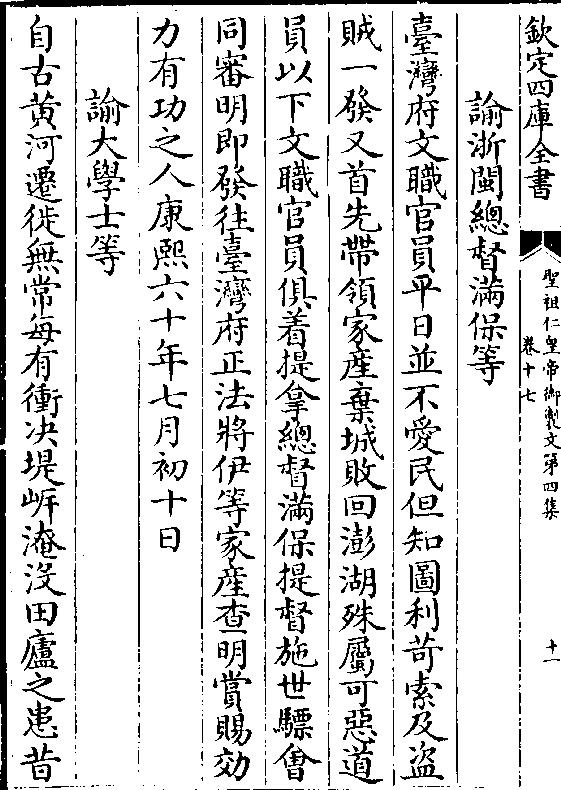 欽定四庫全書
聖祖仁皇帝御製文第四集
卷十七
十一
諭浙閩總督滿保等
臺灣府文職官員平日並不愛民但知圖利苛索及盜
賊一發又首先帶領家産棄城敗回澎湖殊屬可惡道
員以下文職官員俱着提拿總督滿保提督施世驃會
同審明即發往臺灣府正法將伊等家産查明賞賜効
力有功之人康熙六十年七月初十日
諭大學士等
自古黄河遷徙無常每有衝决堤岍淹沒田廬之患昔